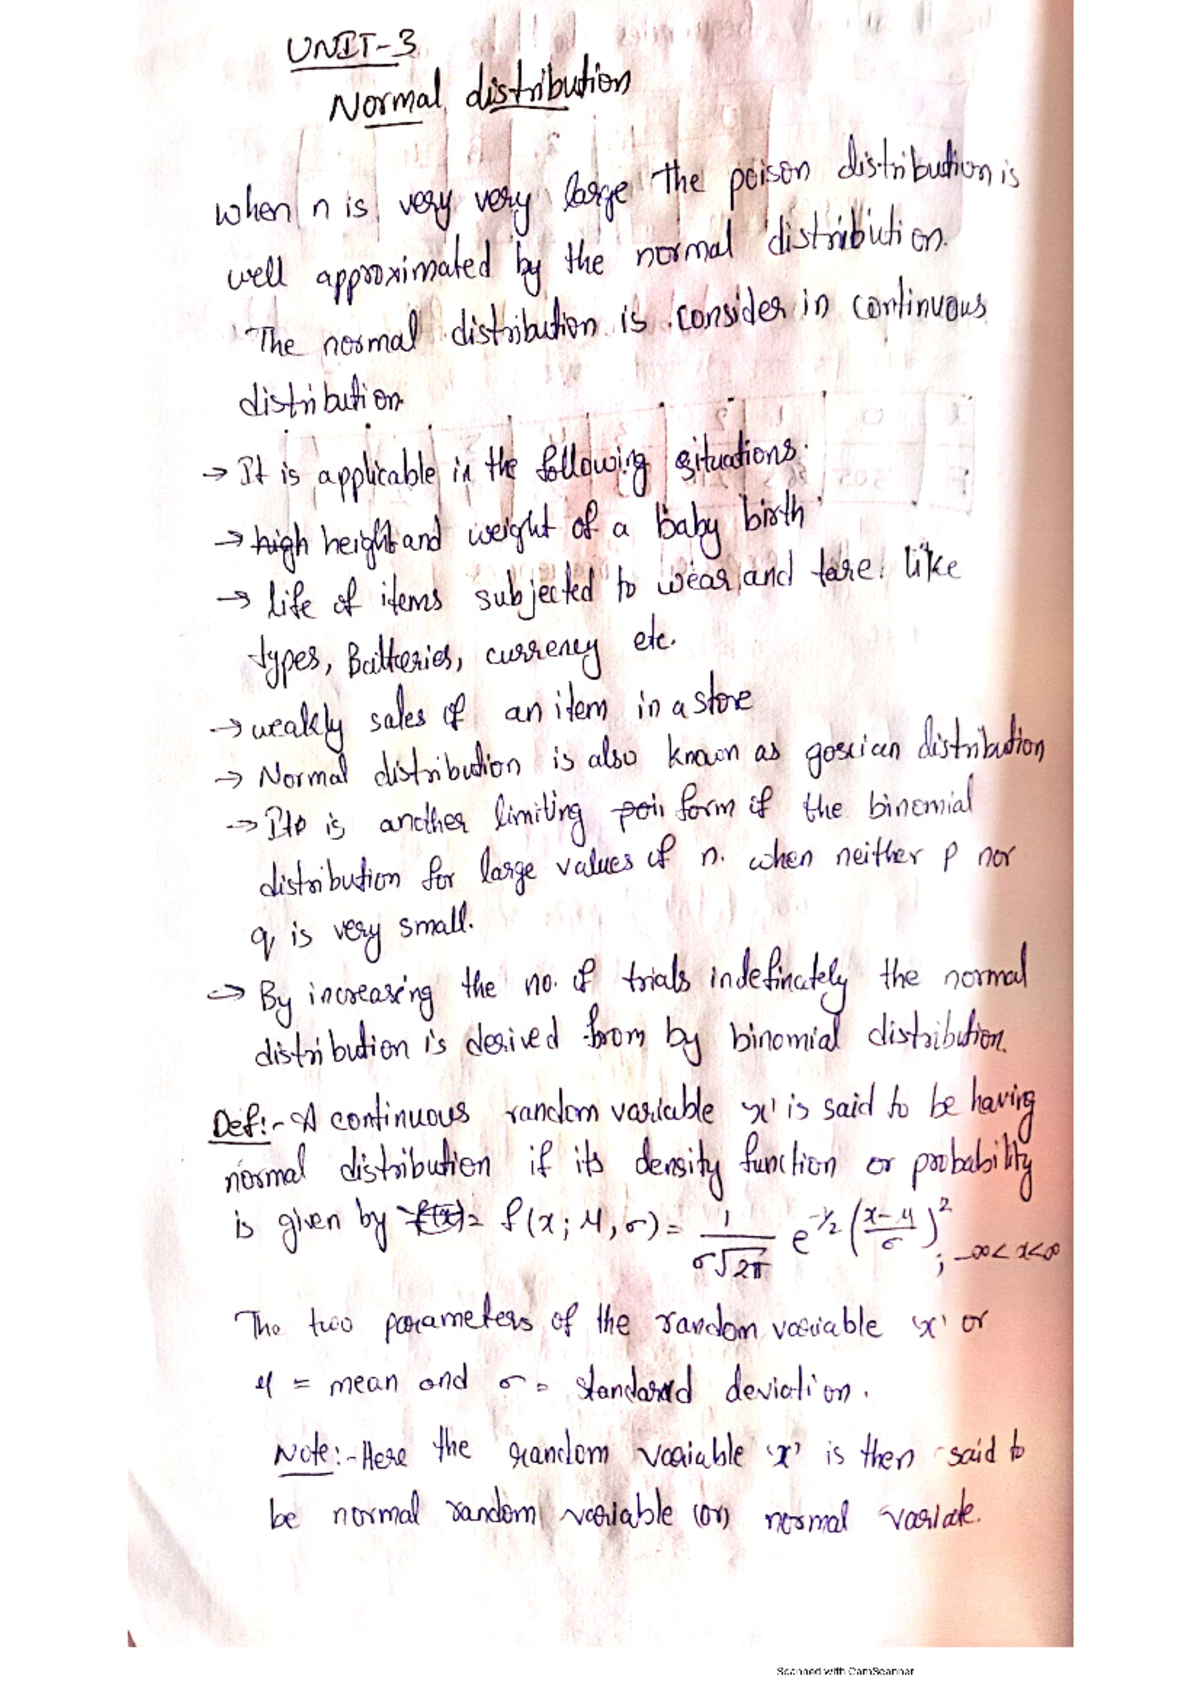 UNIT-3
Normal distribution
when n is very very large the poison distribution is
well approximated by the normal distribution.
The normal distribution is consider in continuous
distribution.
→ It is applicable in the following situations.
→ high height and weight of a baby birth
→ life of items subjected to wear and tare like
types, Batteries, currency etc.
→ weakly sales of an item in a store
→ Normal distribution is also known as goscian distribution
→ It is another limiting poii form of the binomial
distribution for large values of n. when neither p nor
q is very small.
→ By increasing the no. of trials indefinately the normal
distribution is desived from by binomial distribution.
Def:- A continuous random variable 'x' is said to be having
normal distribution if its density function or probability
is given by f(x)= f(x; μ, σ) = 1/(σ√2π) e^(-1/2 ((x-μ)/σ)^2) ; -∞< x<∞
The two parameters of the random variable 'x' or
μ = mean and σ = standard deviation.
Note:- Here the random variable 'x' is then said to
be normal random variable (or) normal variate.
Scanned with CamScanner